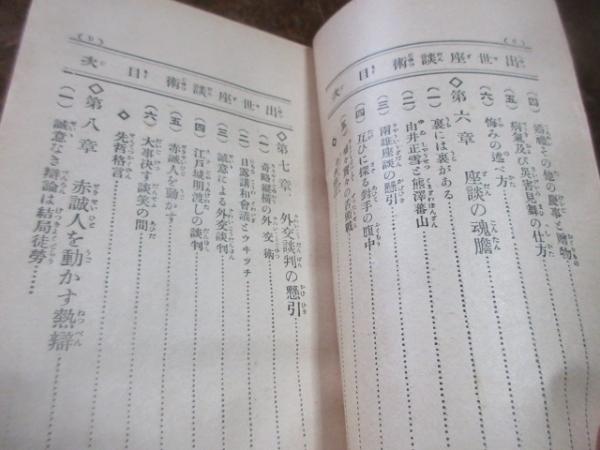 出世座談術目次
(四) 婚礼その他の慶事と贈物
(五) 病気及び災害見舞の仕方
(六) 悔みの述べ方
◇第六章 座談の魂膽
(一) 裏には裏がある
(二) 由井正雪と熊澤蕃山
(三) 兩雄座談の懸引
(四) 互ひに探る對手の腹中
出世座談術目次
◇第七章 外交談判の懸引
(一) 奇略縱橫の外交術
(二) 日露講和會議とウヰッテ
(三) 誠意による外交談判
(四) 江戸城明渡しの談判
(五) 赤誠人を動かす
(六) 大事決す談笑の間
◇先哲格言
◇第八章 赤誠人を動かす熱辯
(一) 誠意なき辯論は結局徒勞